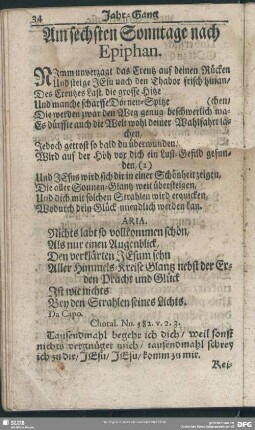 34 Jahr-Gang
Am sechsten Sonntage nach
Epiphan.
Nimm unverzagt das Creutz auf deinen Rücken
Und steige JEsu nach den Thabor frisch hinan/
Des Creutzes Last, die grosse Hitze
Und manche scharffe Dornen-Spitze (chen/
Die werden zwar den Weg genug beschwerlich ma-
Es dürffte auch die Welt wohl deiner Wahlfahrt la-
Jedoch getrost so bald du überwunden, (chen,
Wird auf der Höh vor dich ein Lust-Gefild gefun-
den. (2)
Und JEsus wird sich dir in einer Schönheit zeigen,
Die aller Sonnen-Glantz weit übersteigen,
Und dich mit solchen Strahlen wird erquicken,
Wodurch dein Glück unendlich werden kan.
ARIA.
Nichts labt so vollkommen schön,
Als nur einen Augenblick,
Den verklärten JEsum sehn
Aller Himmels-Kreise Glantz nebst der Er-
den Pracht und Glück
Ist wie nichts
Bey den Strahlen seines Lichts.
Da Capo.
Choral. No. 582. v. 2. 3.
Tausendmahl begehr ich dich/ weil sonst
nichts vergnüget mich/ tausendmahl schrey
ich zu dir/ JEsu/ JEsu/ komm zu mir.
Rei-
SLUB
DFG